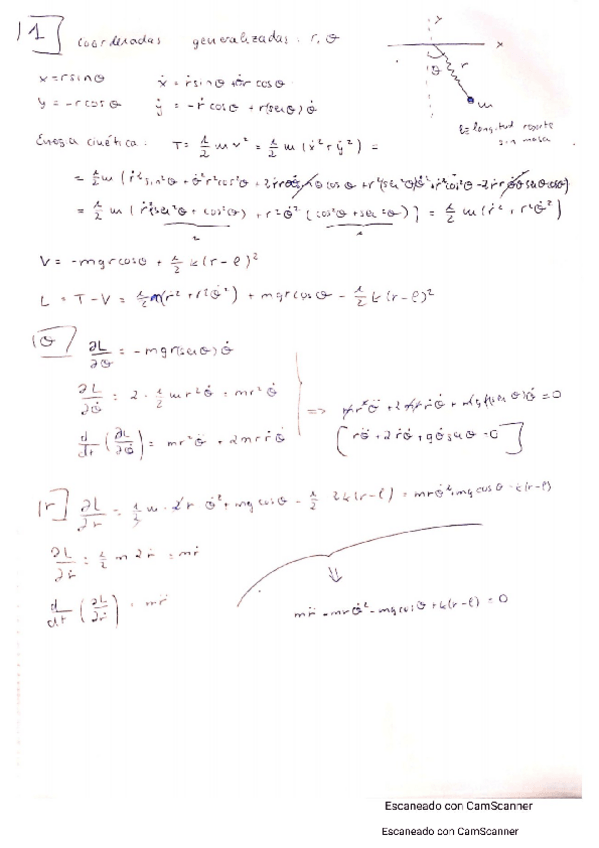 1] coordenadas generalizadas: r, θ
y
x
θ
r
m
ℓ≡longitud resorte
sin masa
x = r sinθ ẋ = ṙ sinθ + θ̇r cosθ
y = -r cosθ ẏ = -ṙ cosθ + r(senθ) θ̇
Energía cinética: T = 1/2 m v² = 1/2 m (ẋ² + ẏ²) =
= 1/2 m (ṙ² sin²θ + θ̇² r² cos²θ + 2ṙrθ̇ sinθ cosθ + r²(sen²θ)θ̇² + ṙ² cos²θ - 2ṙrθ̇ senθ cosθ)
= 1/2 m (ṙ²(sen²θ + cos²θ) + r²θ̇² [cos²θ + sen²θ)] = 1/2 m (ṙ² + r²θ̇²)
1 1
V = -mgr cosθ + 1/2 k (r-ℓ)²
L = T - V = 1/2 m (ṙ² + r²θ̇²) + mgr cosθ - 1/2 k (r-ℓ)²
[θ] ∂L/∂θ = -mgr(senθ) θ̇
∂L/∂θ̇ = 2 · 1/2 m r² θ̇ = m r² θ̇
d/dt (∂L/∂θ̇) = m r² θ̈ + 2 m r ṙ θ̇
=> m r² θ̈ + 2 m r ṙ θ̇ + m g r (senθ) θ̇ = 0
[r θ̈ + 2 ṙ θ̇ + g θ̇ senθ = 0]
[r] ∂L/∂r = 1/2 m · 2r θ̇² + mg cosθ - 1/2 2k(r-ℓ) = m r θ̇² + mg cosθ - k(r-ℓ)
∂L/∂ṙ = 1/2 m 2ṙ = mṙ
d/dt (∂L/∂ṙ) = m r̈
⇓
m r̈ - m r θ̇² - mg cosθ + k(r-ℓ) = 0
Escaneado con CamScanner
Escaneado con CamScanner